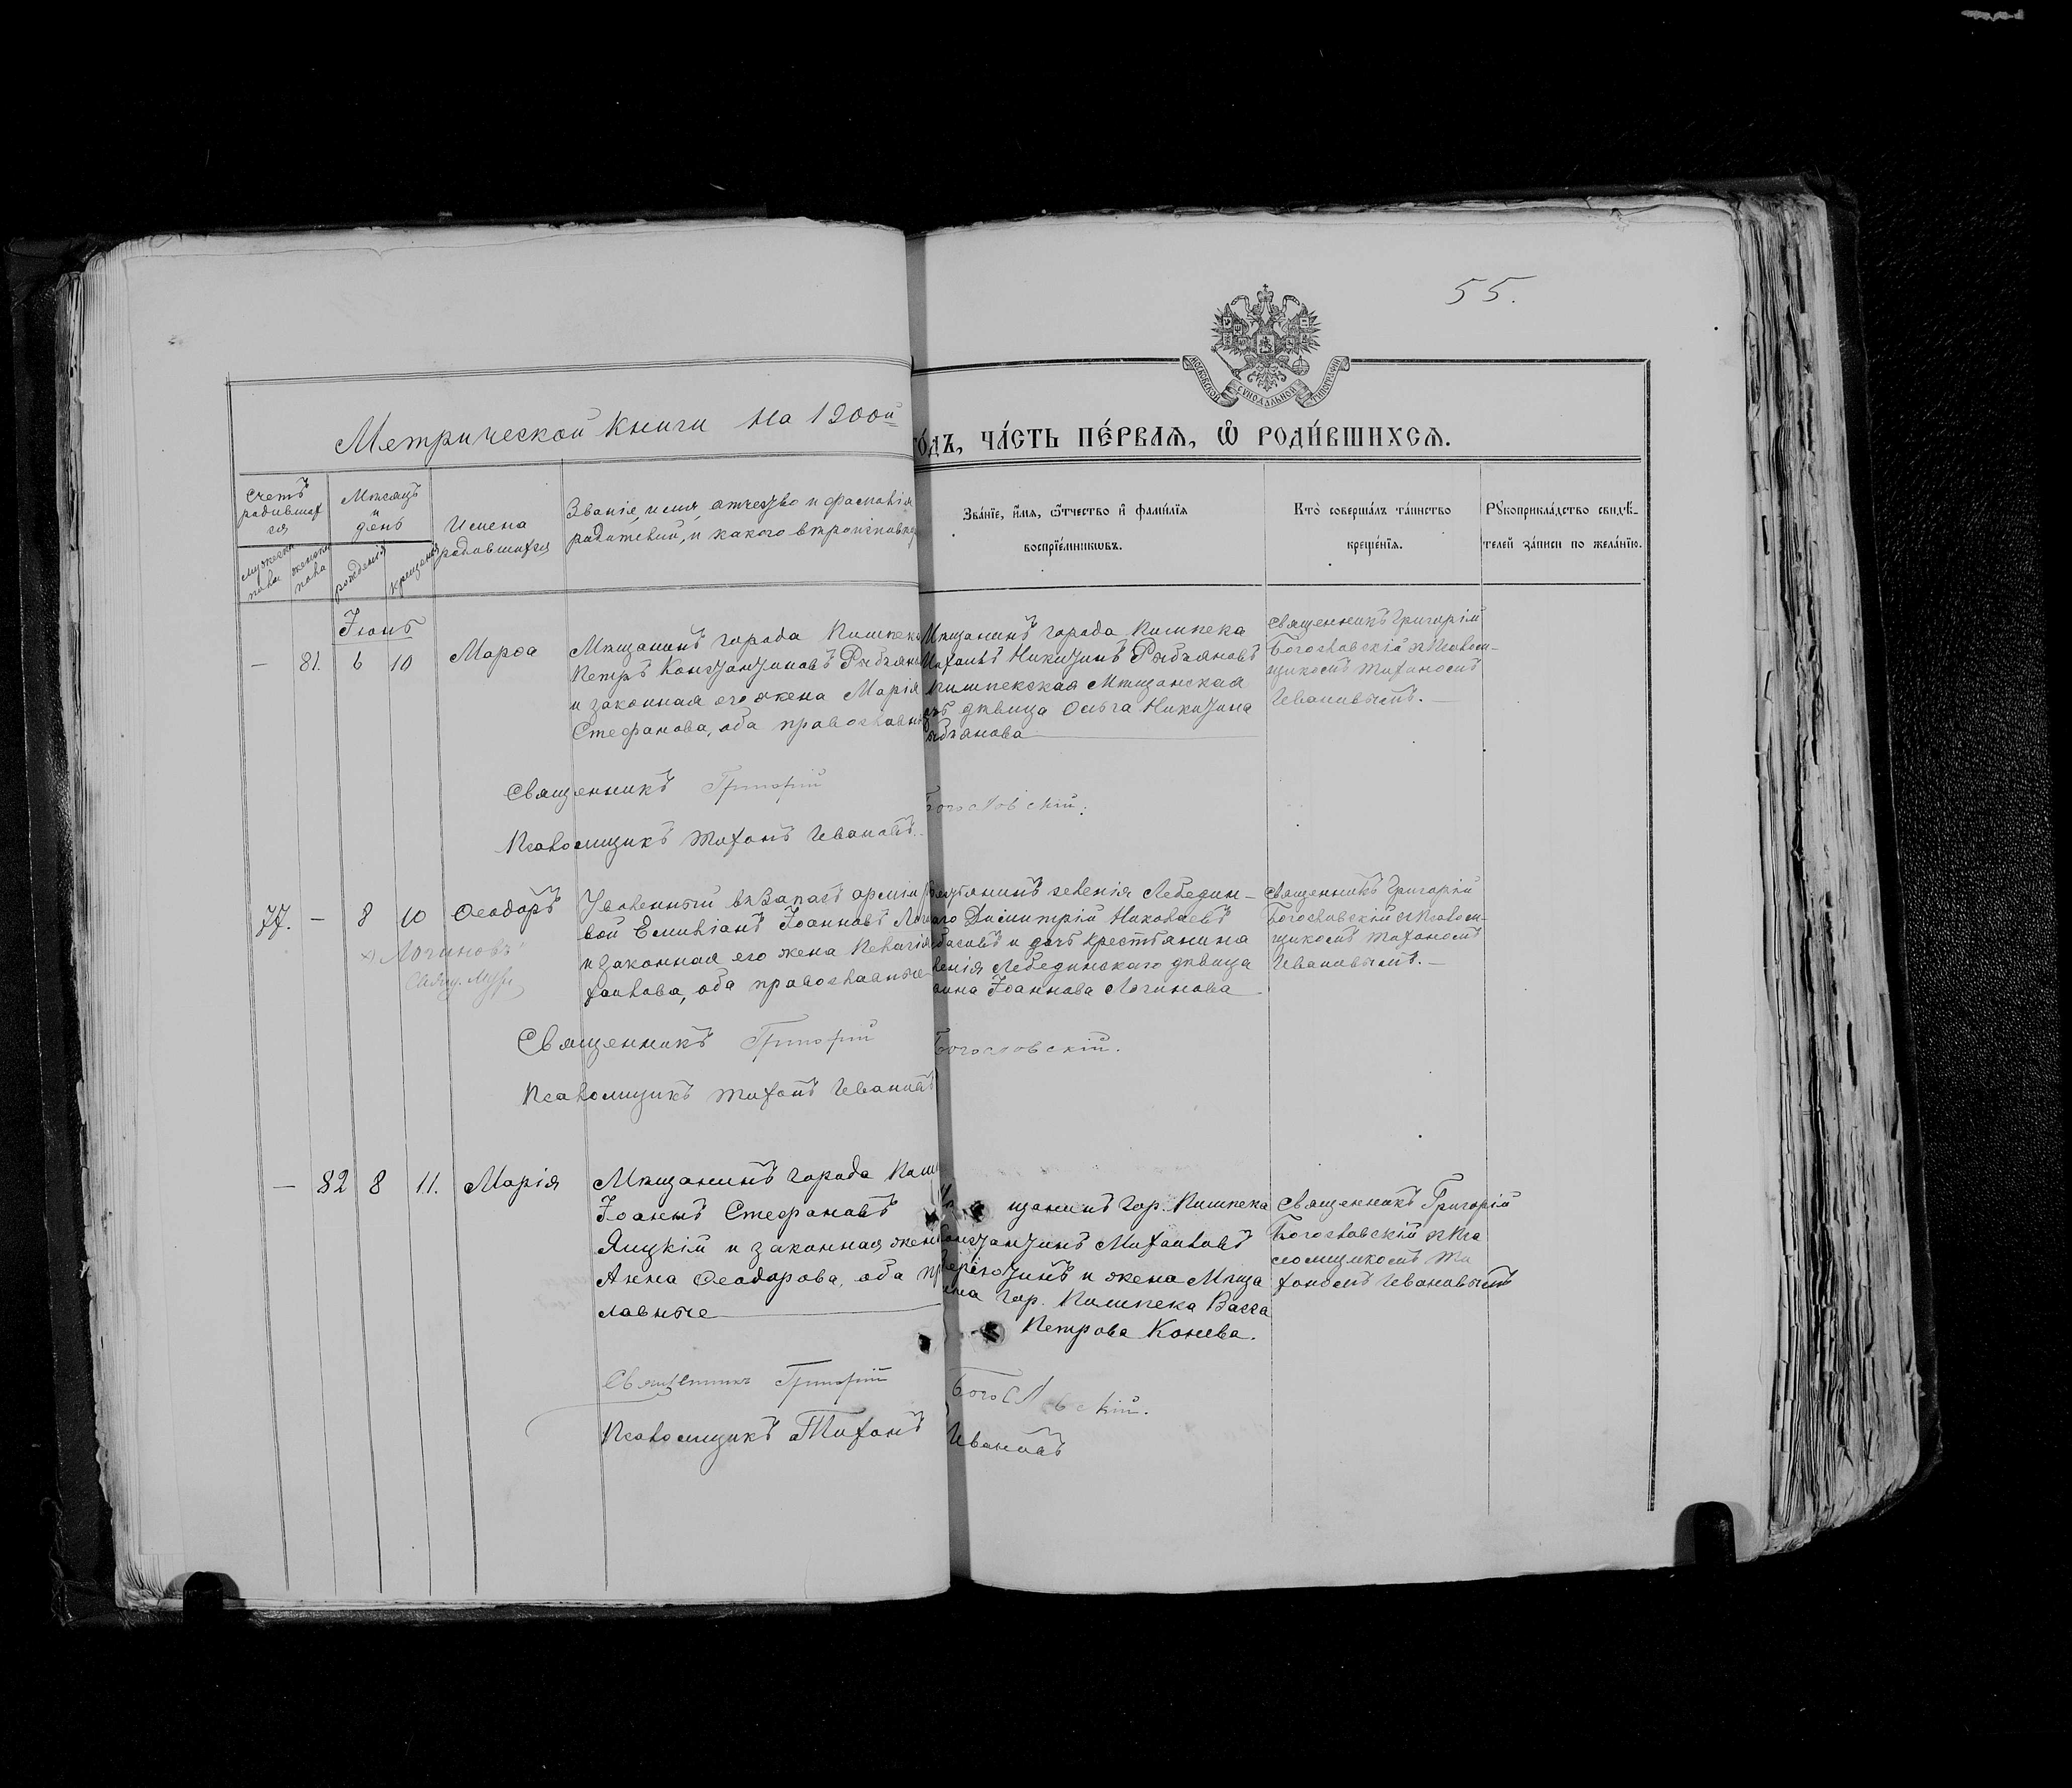 55.
МОСКОВСКОЙ СѴНОДАЛЬНОЙ ТИПОГРАФІИ
Метрической книги на 1900й
го́дъ, ча́сть пе́рваѧ, ѽ роди́вшихсѧ.
Счетъ родившихся
мужеска пола
женска пола
Мѣсяцъ и день
рожденія
крещенія
Имена родившихся
Званіе, имя, отчество и фамилія
родителей, и какого вѣроисповѣд
Зва́нїе, и҆́мѧ, ѻ҆́тчество и҆ фами́лїѧ
воспрїе́мникѡвъ.
Кто̀ соверша́лъ та́инство
креще́нїѧ.
Рꙋкоприкла́дство свидѣ́-
телей за́писи по жела́нїю.
Іюнь
— 81. 6 10 Марѳа
Мѣщанинъ города Пишпека
Петръ Константиновъ Рыбьян
и законная его жена Марія
Стефанова, оба православн
Мѣщанинъ города Пишпека
Михаилъ Никитинъ Рыбьяновъ
Пишпекская мѣщанская
дѣвица Ольга Никитина
Рыбьянова
Священникъ Григорій
Богословскій съ Псалом-
щикомъ Тихономъ
Ивановымъ. —
Священникъ Григорій Богословскій.
Псаломщикъ Тихонъ Ивановъ.
77. — 8 10 Ѳеодоръ
х) Логиновъ
Свящ.
Уволенный въ запасъ арміи
вой Емиліанъ Іоанновъ Лог
и законная его жена Пелагія
хаилова, оба православные
крестьянинъ селенія Лебедин-
аго Димитрій Николаевъ
и дочь крестьянина
ленія Лебединскаго дѣвица
Іоаннова Логинова
Священникъ Григорій
Богословскій съ Псалом-
щикомъ Тихономъ
Ивановымъ. —
Священникъ Григорій Богословскій.
Псаломщикъ Тихонъ Ивановъ
— 82 8 11. Марія
Мѣщанинъ города Пиш
Іоаннъ Стефановъ
Яицкій и законная жена
Анна Ѳеодорова, оба пр
славные
щанинъ гор. Пишпека
Константинъ Михаиловъ
и жена Мѣща
нина гор. Пишпека Васса
Петрова Конева.
Священникъ Григорій
Богословскій съ Пса
ломщикомъ Ти
хономъ Ивановымъ
Священникъ Григорій Богословскій.
Псаломщикъ Тихонъ Ивановъ